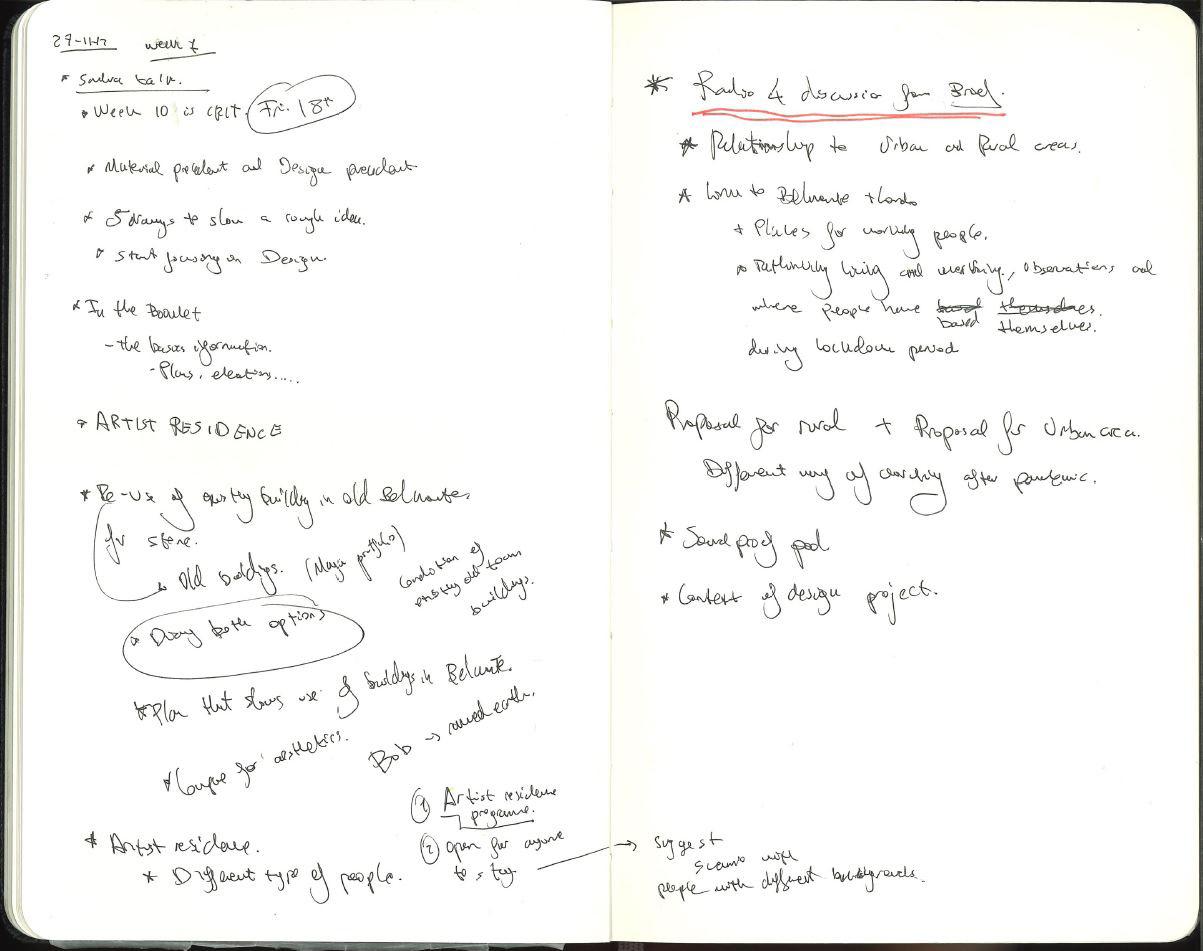 week 7
* Sandra talk.
* Week 10 is crit. Fri. 18th
* Material precedent and Design precedent
* 5 drawings to show a rough idea.
* start focusing on Design.
* In the Booklet
- the basics information.
- Plans, elevations.....
* ARTIST RESIDENCE
* Re-use of existing building in old Belmonte,
for stone.
Old buildings. (Maya portfolio)
Condition of
existing old town
buildings.
* Diary both options
* Plan that shows use of buildings in Belmonte.
* for aesthetics.
Bob → rammed earth.
* Artist residence.
* Different type of people.
① Artist residence
programme.
② open for anyone
to stay.
* Radio 4 discussion for Brief.
* Relationship to Urban and Rural areas.
* Link to Belmonte + London
* Places for working people.
* Rethinking living and working, observations and
where people have based themselves.
based themselves.
during lockdown period
Proposal for rural + Proposal for Urban area.
Different way of working after pandemic.
* Sound proof pod
* Context of design project.
→ suggest
with
people with different backgrounds.